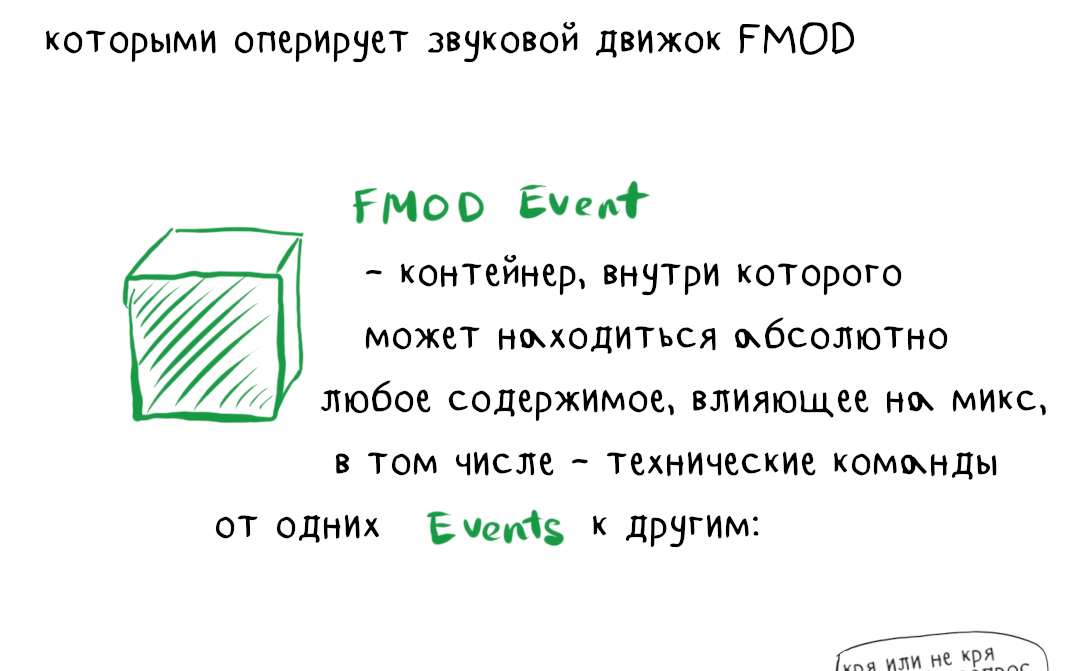 которыми оперирует звуковой движок FMOD
FMOD Event
- контейнер, внутри которого
может находиться абсолютно
любое содержимое, влияющее на микс,
в том числе - технические команды
от одних Events к другим:
кря или не кря